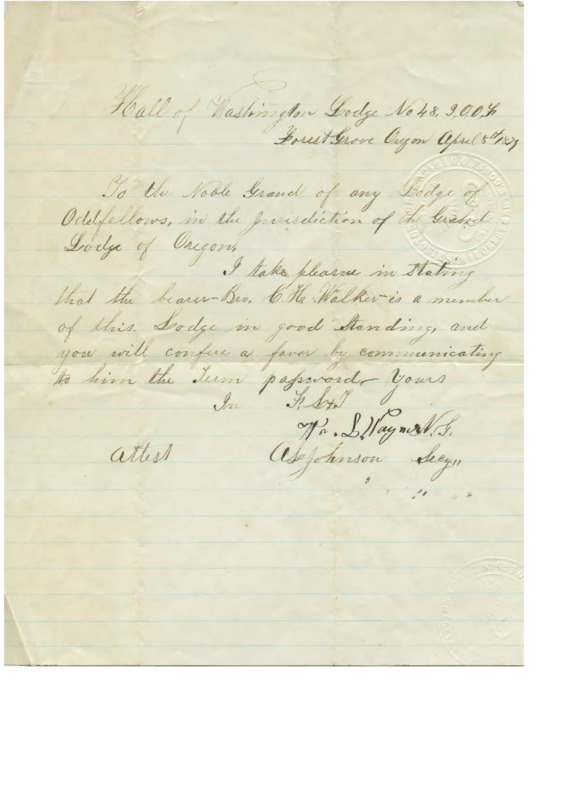 Hall of Washington Lodge No 48, I.O.O.F.
Forest Grove Oregon April 8th 1879
To the Noble Grand of any Lodge of
Oddfellows, in the Jurisdiction of the Grand
Lodge of Oregon,
I take pleasure in stating
that the bearer Bro, C. H. Walker is a member
of this Lodge in good Standing, and
you will confere a favor by communicating
to him the Term password Yours
In F. L & T
L. N.G.
Attest Johnson Secy